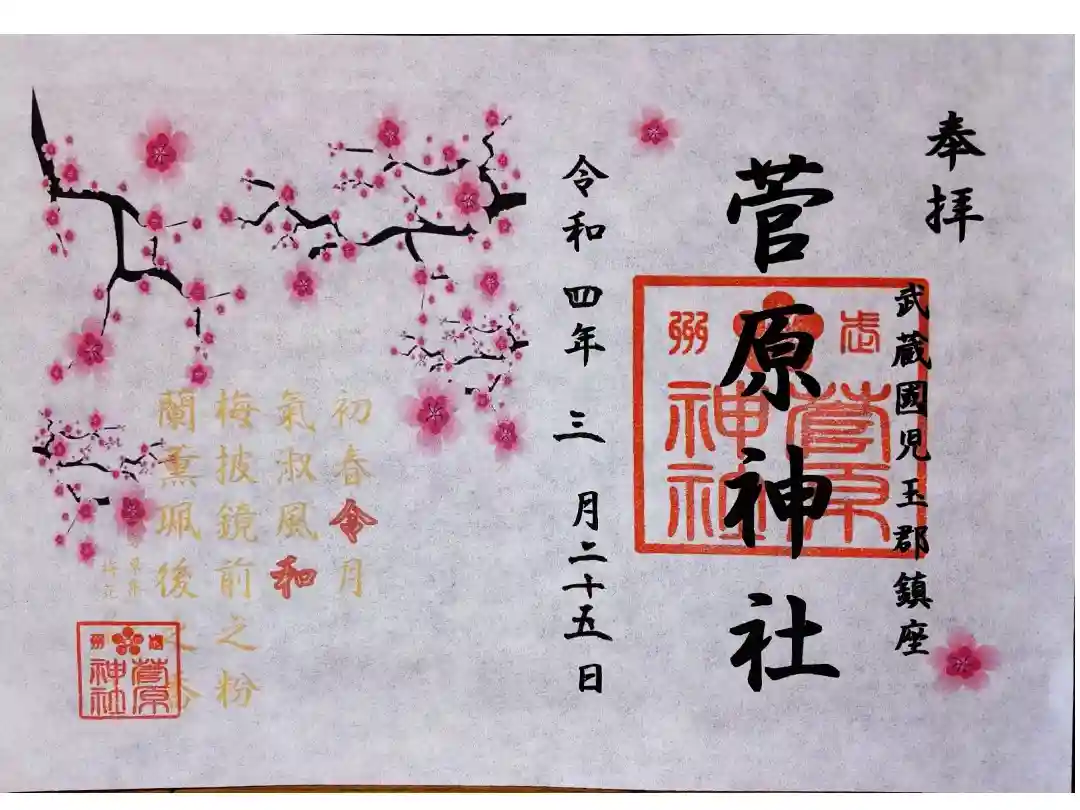 奉拝
武蔵國児玉郡鎮座
菅原神社
武州
菅原
神社
令和四年三月二十五日
初春令月
氣淑風和
梅披鏡前之粉
蘭薫珮後之香
武州
菅原
神社